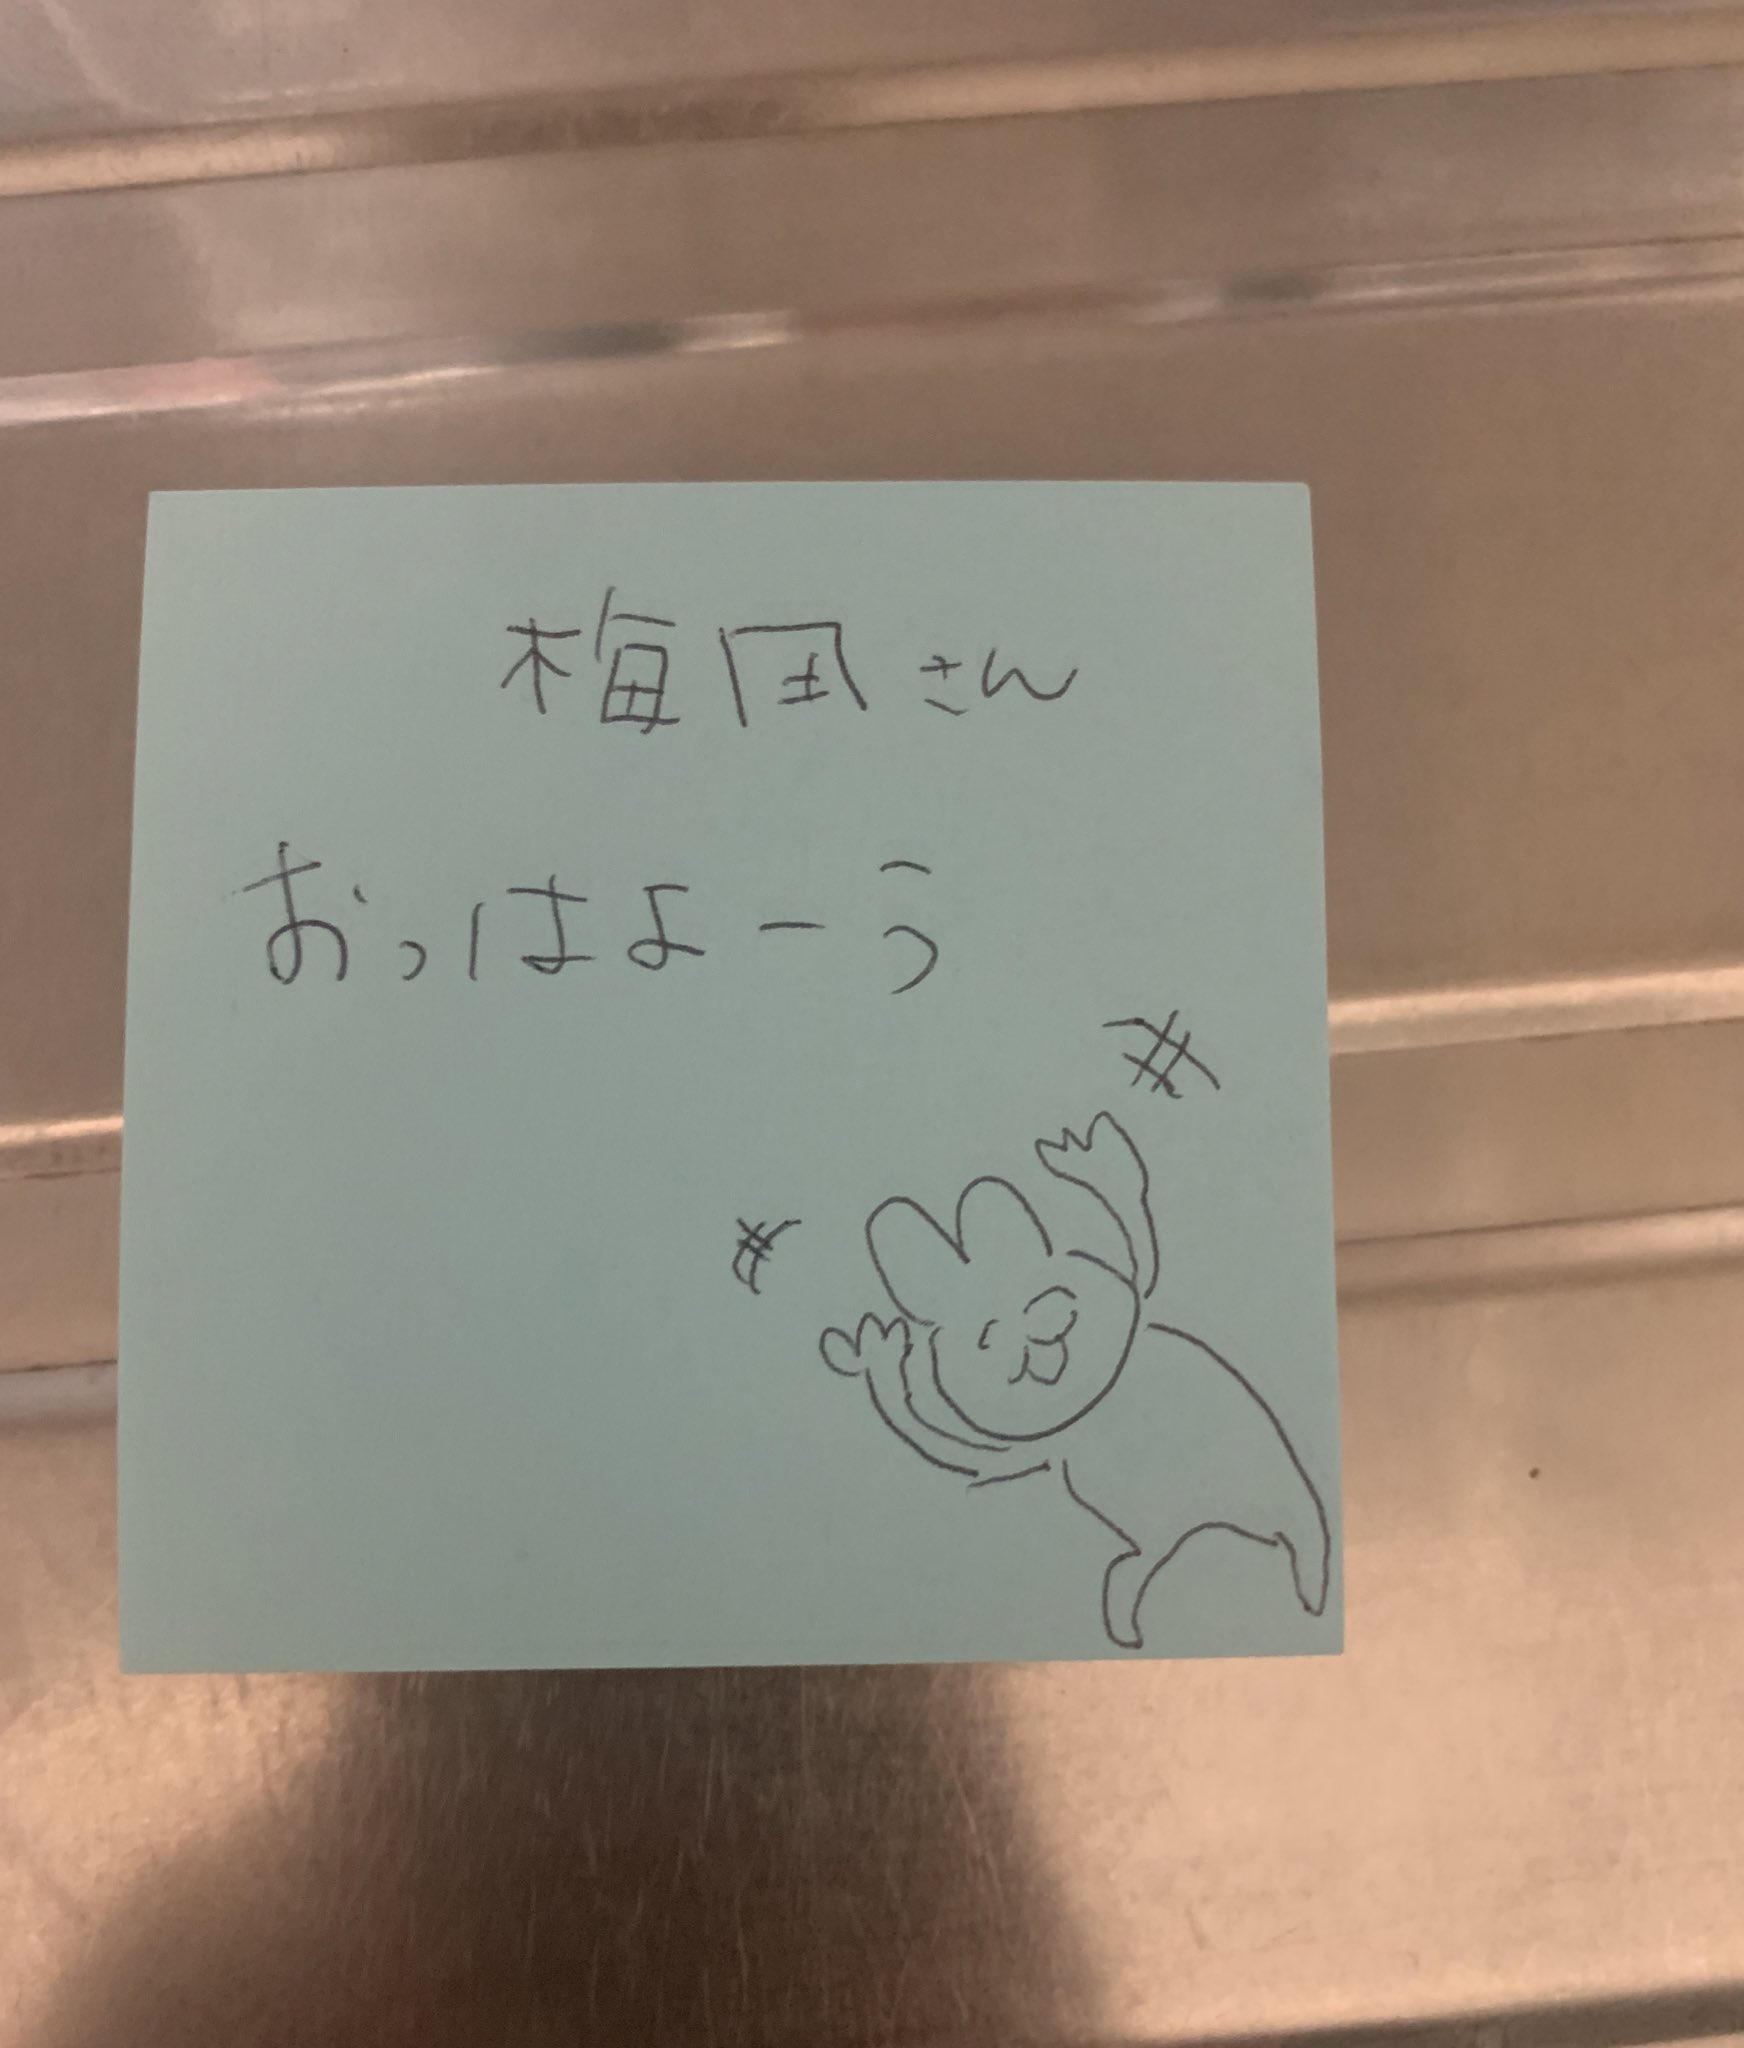 梅 さん
おっはよーう